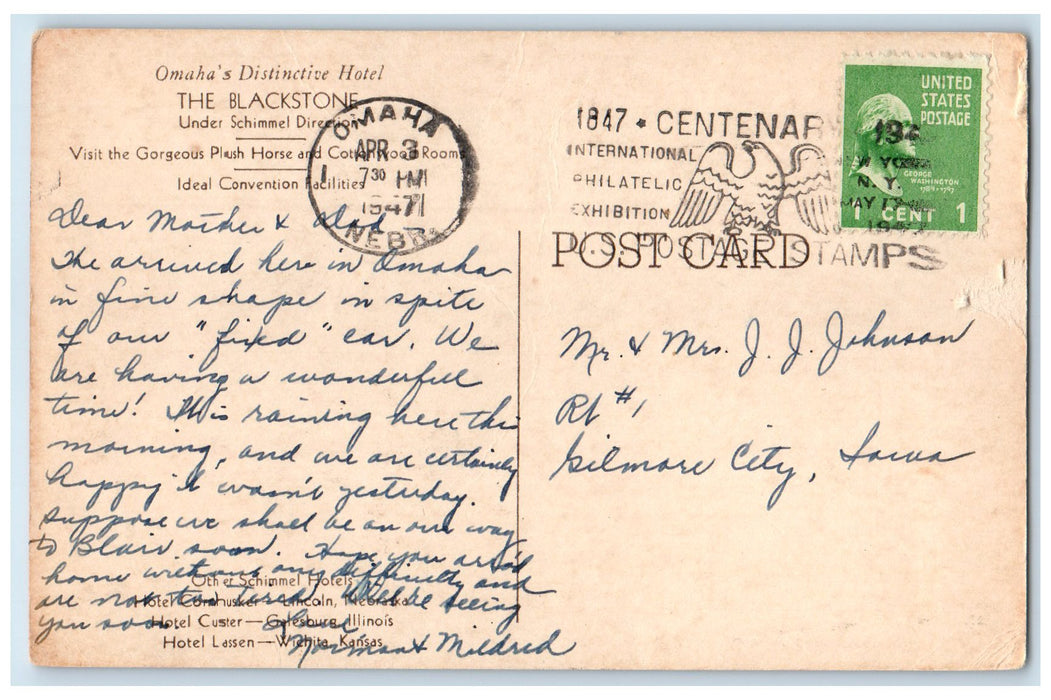 Omaha's Distinctive Hotel
THE BLACKSTONE
Under Schimmel Direction
Visit the Gorgeous Plush Horse and Cottonwood Rooms
Ideal Convention Facilities
OMAHA
APR 3
7 30 PM
1947
NEBR.
1847 * CENTENARY
INTERNATIONAL
PHILATELIC
EXHIBITION
U.S. POSTAGE STAMPS
NEW YORK
N.Y.
MAY 17
1947
UNITED
STATES
POSTAGE
GEORGE
WASHINGTON
1789-1797
1 CENT 1
POST CARD
Dear Mother & Dad
The arrived here in Omaha
in fine shape in spite
of our "fixed" car. We
are having a wonderful
time! It is raining here this
morning, and we are certainly
happy it wasn't yesterday.
Suppose we shall be on our way
to Blair soon. Hope you arriv'd
home without any difficulty and
are not too tired. We'll be seeing
you soon
Love
Norman & Mildred
Other Schimmel Hotels
Hotel Cornhusker—Lincoln, Nebraska
Hotel Custer—Galesburg, Illinois
Hotel Lassen—Wichita, Kansas
Mr. & Mrs. J. J. Johnson
Rt #1
Gilmore City, Iowa